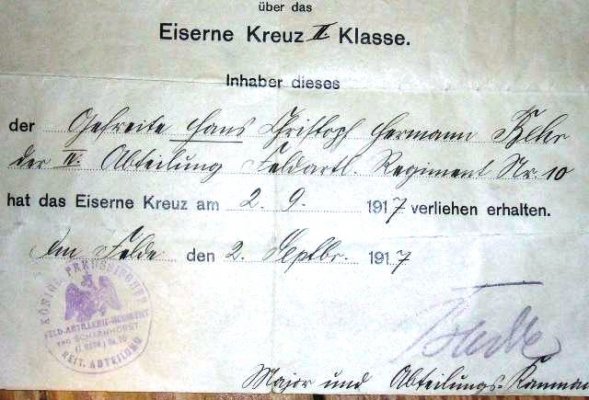 über das
Eiserne Kreuz II. Klasse.
Inhaber dieses
der Gefreite Hans Christoph Hermann
der IV. Abteilung Feldartl. Regiment Nr. 10
hat das Eiserne Kreuz am 2. 9. 1917 verliehen erhalten.
Im Felde den 2. Septbr. 1917
KÖNIGL. PREUSSISCHES
FELD-ARTILLERIE-REGIMENT
VON SCHARNHORST
REIT. ABTEILUNG
Major und Abteilungs-